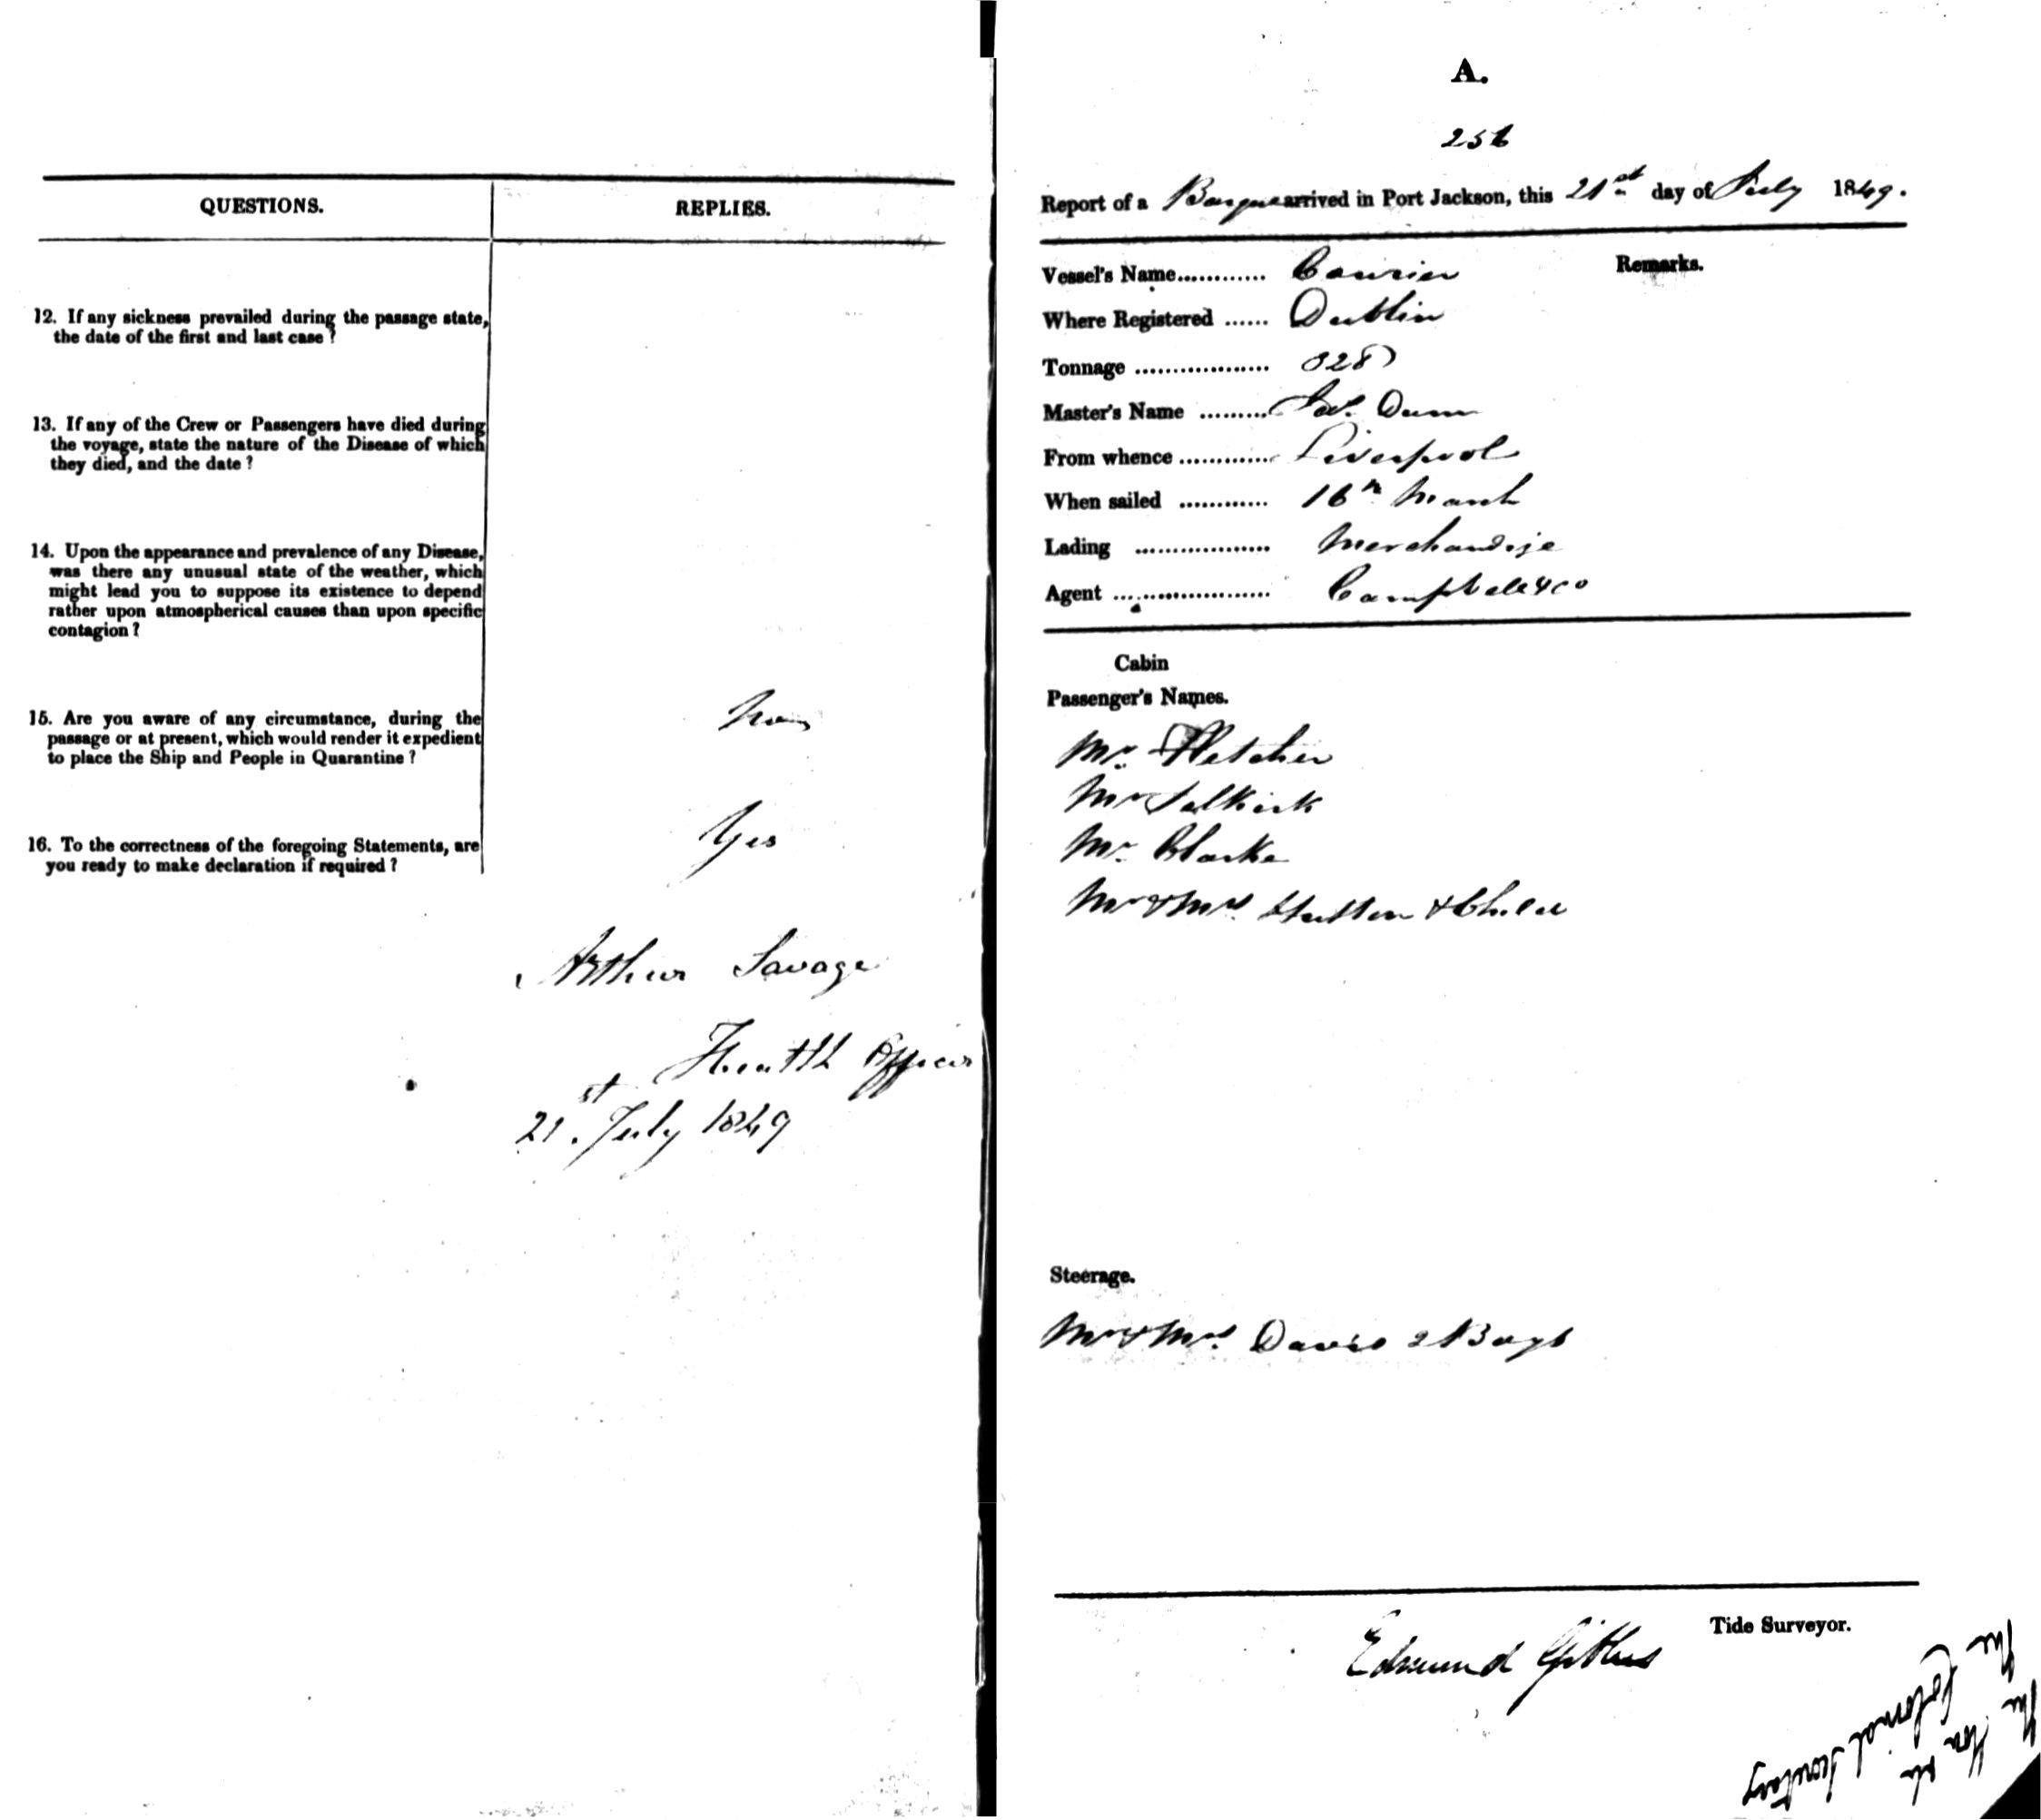 QUESTIONS.
REPLIES.
12. If any sickness prevailed during the passage state,
the date of the first and last case?
13. If any of the Crew or Passengers have died during
the voyage, state the nature of the Disease of which
they died, and the date?
14. Upon the appearance and prevalence of any Disease,
was there any unusual state of the weather, which
might lead you to suppose its existence to depend
rather upon atmospherical causes than upon specific
contagion?
15. Are you aware of any circumstance, during the
passage or at present, which would render it expedient
to place the Ship and People in Quarantine?
16. To the correctness of the foregoing Statements, are
you ready to make declaration if required?
Yes
Arthur Savage
Health Officer
21st July 1849
A.
256
Report of a Barque arrived in Port Jackson, this 21st day of July 1849.
Remarks.
Vessel's Name............ Courier
Where Registered ...... Dublin
Tonnage .................. 328
Master's Name ......... Dunn
From whence ............ Liverpool
When sailed ............ 16th March
Lading .................. Merchandize
Agent ..................... Campbell & Co
Cabin
Passenger's Names.
Mr. Fletcher
Mr Selkirk
Mr. Clarke
Mr & Mrs. Hutton & Child
Steerage.
Mr & Mrs. Davis 2 Boys
Tide Surveyor.
Edmund Gibbes
The Hon
The
Colonial Secretary